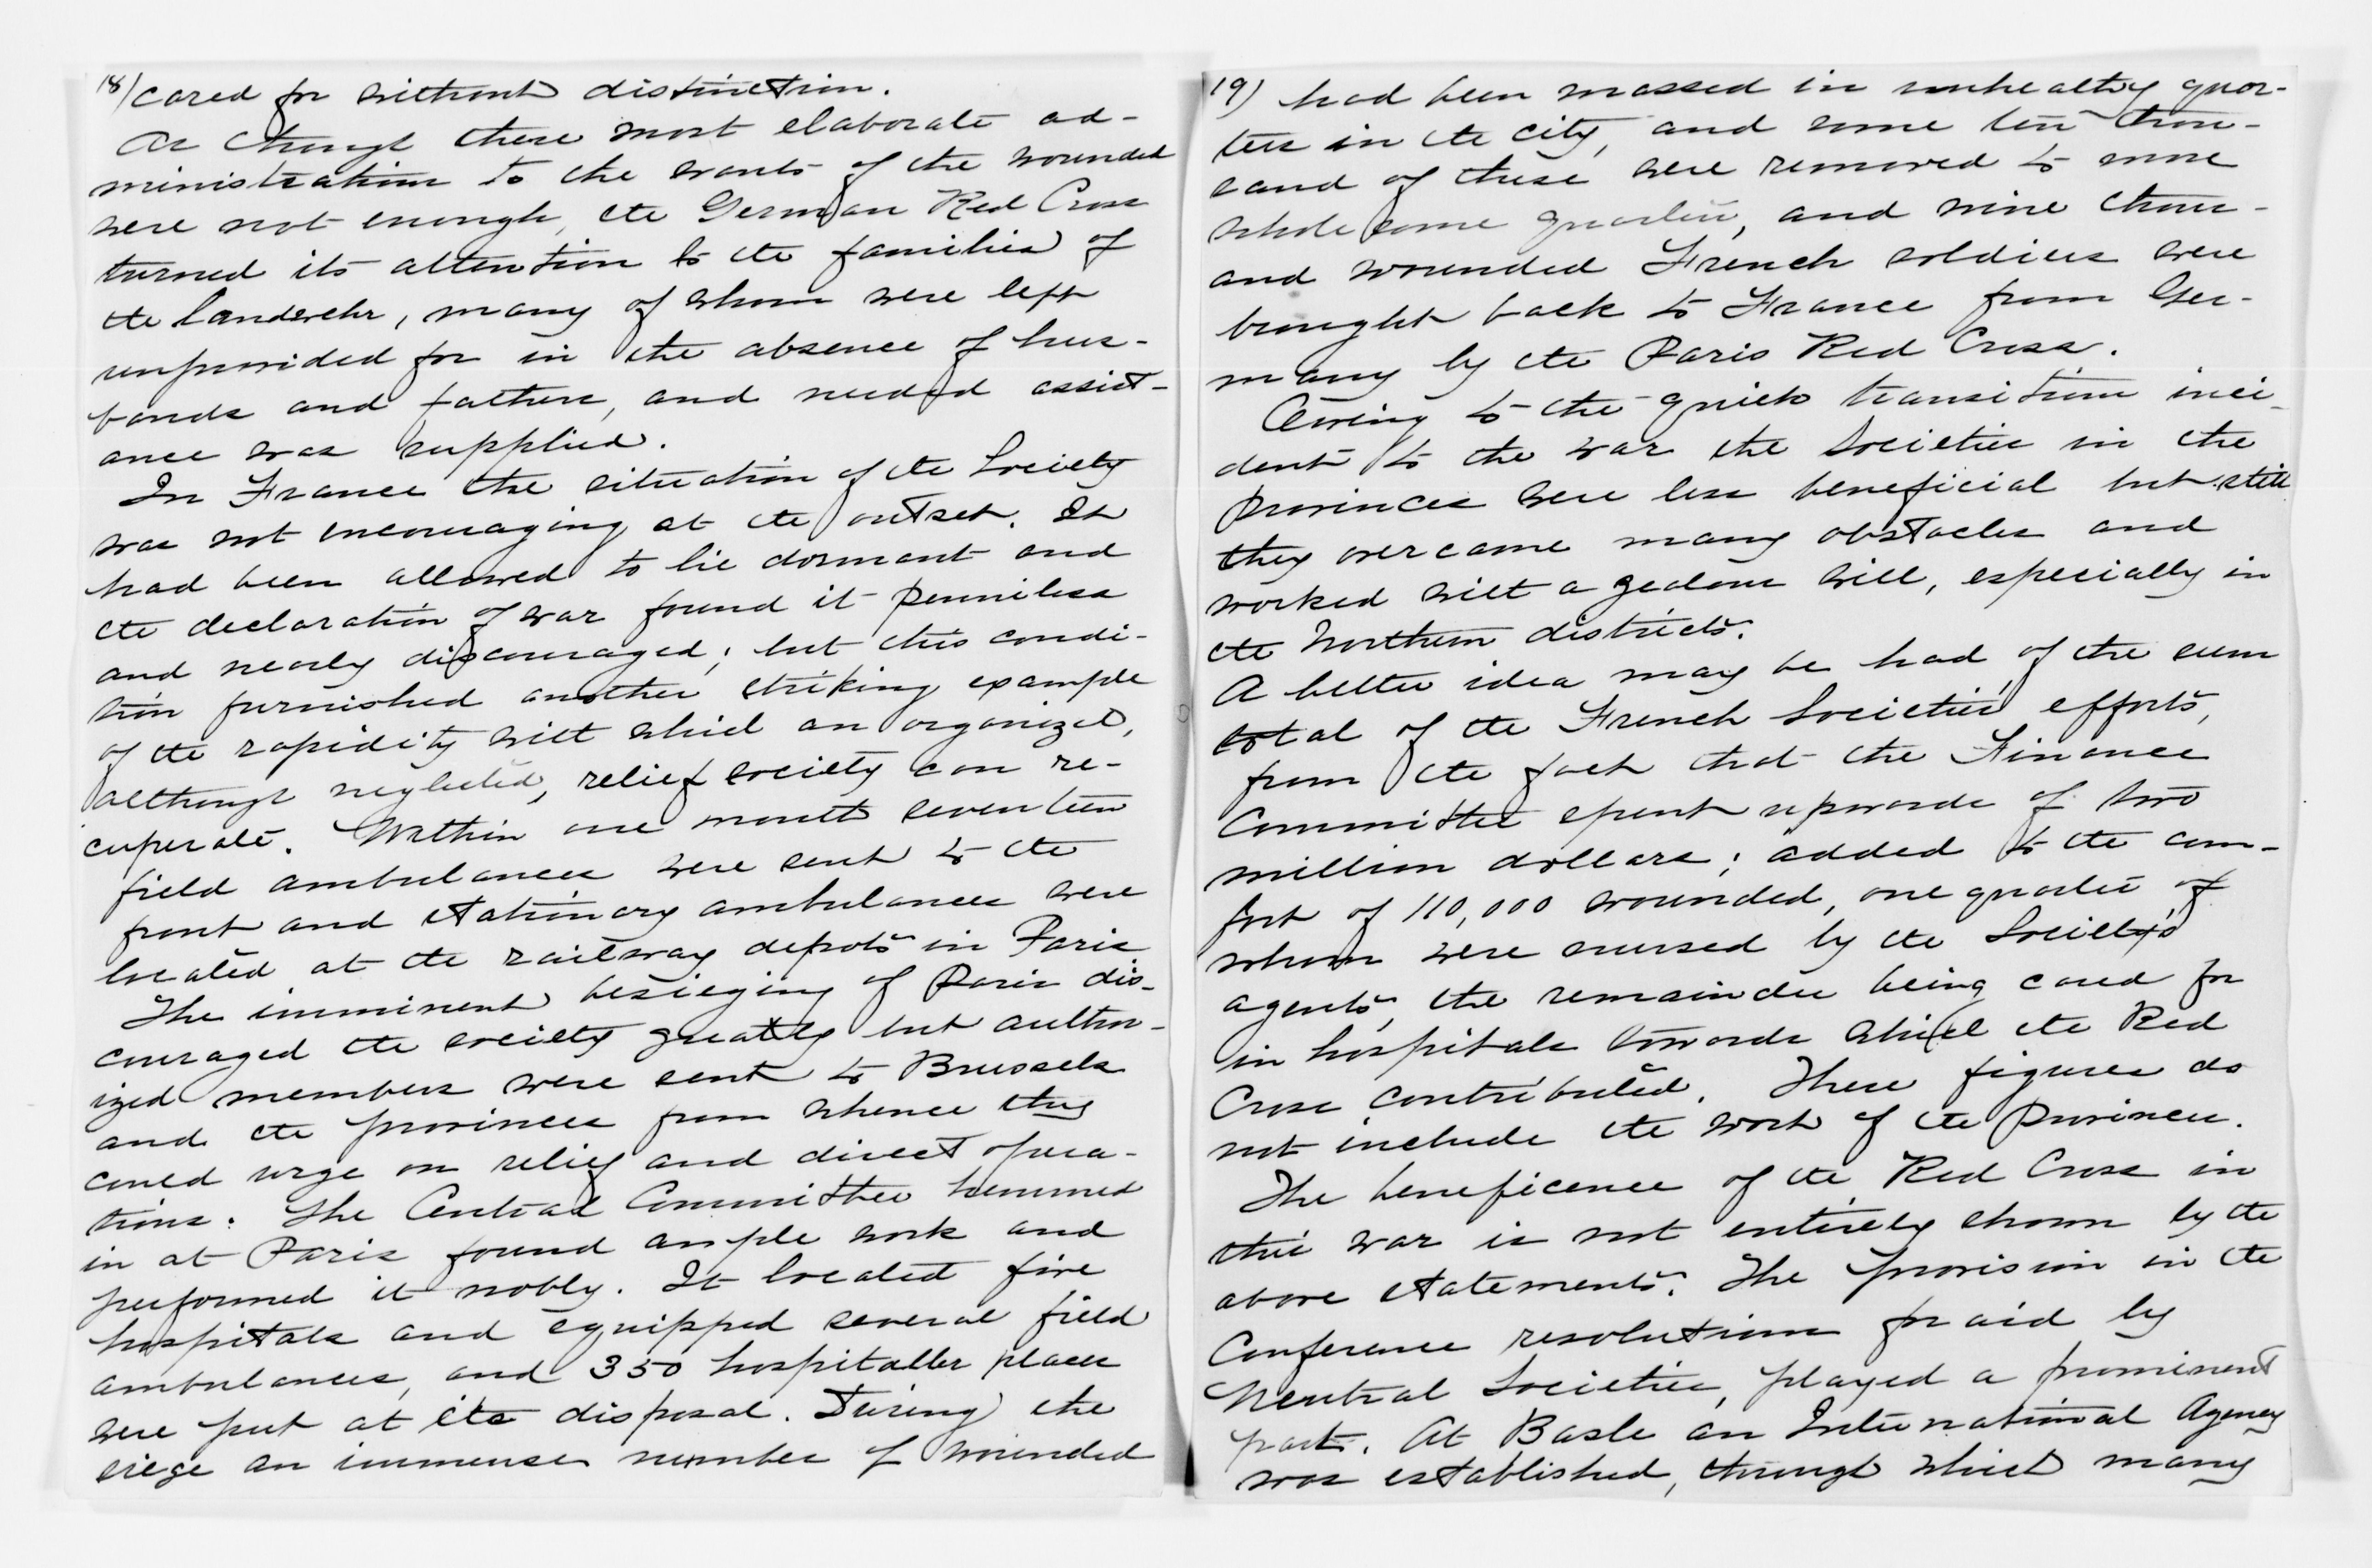 18) cared for without distinction.
As though these most elaborate ad-
ministration to the wants of the wounded
were not enough, the German Red Cross
turned its attention to the families of
the landwehr, many of whom were left
unprovided for in the absence of hus-
bands and fathers, and needed assist-
ance was supplied.
In France the situation of the Society
was not encouraging at the outset. It
had been allowed to lie dormant and
the declaration of war found it penniless
and nearly discouraged; but this condi-
tion furnished another striking example
of the rapidity with which an organized,
although neglected, relief society can re-
cuperate. Within one month seventeen
field ambulances were sent to the
front and stationary ambulances were
located at the railway depots in Paris
The imminent besieging of Paris dis-
couraged the society greatly but author-
ized members were sent to Brussels
and the provinces from whence they
could urge on relief and direct opera-
tions. The Central Committee hemmed
in at Paris found ample work and
performed it nobly. It located five
hospitals and equipped several field
ambulances, and 350 hospitaller places
were put at its disposal. During the
siege an immense number of wounded
19) had been massed in unhealthy quar-
ters in the city, and some ten thou-
sand of these were removed to more
wholesome quarters, and nine thous-
and wounded French soldiers were
brought back to France from Ger-
many by the Paris Red Cross.
Owing to the quick transition inci-
dent to the war the Societies in the
provinces were less beneficial but still
they overcame many obstacles and
worked with a zealous will, especially in
the Northern districts.
A better idea may be had, of the sum
total of the French Societies efforts,
from the fact that the Finance
Committee spent upwards of two
million dollars; added to the com-
fort of 110,000 wounded, one quarter of
whom were nursed by the Society's
agents, the remainder being cared for
in hospitals towards which the Red
Cross contributed. These figures do
not include the work of the Provinces.
The beneficence of the Red Cross in
this war is not entirely shown by the
above statements. The provision in the
Conference resolutions for aid by
Neutral Societies, played a prominent
part. At Basle an International Agency
was established, through which many